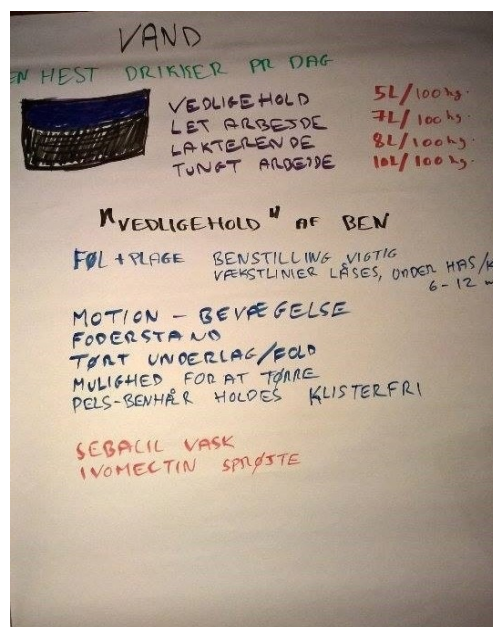 VAND
EN HEST DRIKKER PR DAG
VEDLIGEHOLD 5L/100kg.
LET ARBEJDE 7L/100kg.
LAKTERENDE 8L/100kg.
TUNGT ARBEJDE 10L/100kg.
"VEDLIGEHOLD" AF BEN
FØL + PLAGE BENSTILLING VIGTIG
VÆKSTLINIER LÅSES, UNDER HAS/K
6-12
MOTION - BEVÆGELSE
FODERSTAND
TØRT UNDERLAG/FOLD
MULIGHED FOR AT TØRRE
PELS-BENHÅR HOLDES KLISTERFRI
SEBACIL VASK
IVOMECTIN SPRØJTE